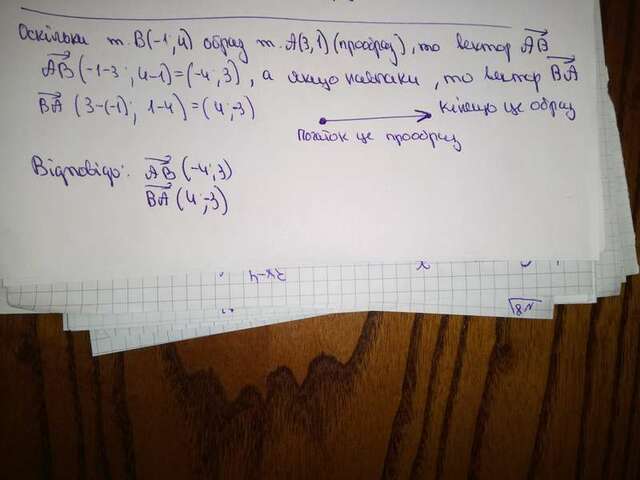 Оскільки т. B(-1;4) образ т. A(3;1) (прообраз), то вектор AB
AB (-1-3; 4-1) = (-4; 3), а якщо навпаки, то вектор BA
BA (3-(-1); 1-4) = (4;-3)
Початок це прообраз
кінець це образ
Відповідь: AB (-4;3)
BA (4;-3)
3x-4